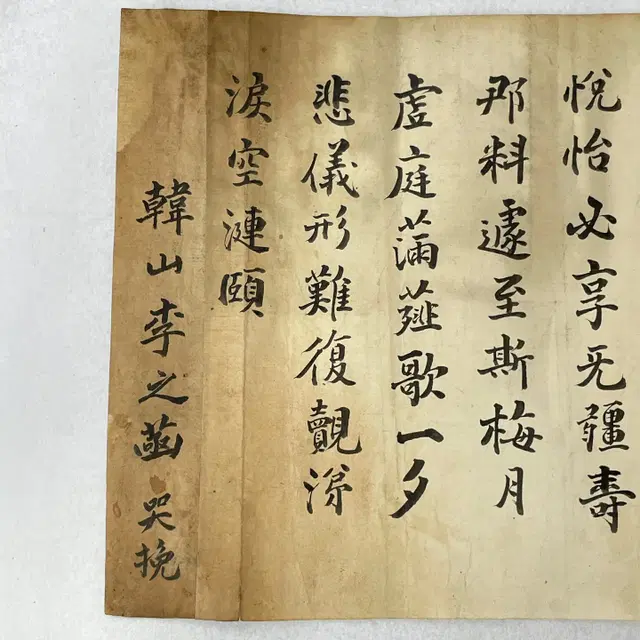 悅怡必享无疆壽
那料遽至斯梅月
虛庭滿薤歌一夕
悲儀形難復覿涕
淚空漣頤
韓山李之菡 哭挽